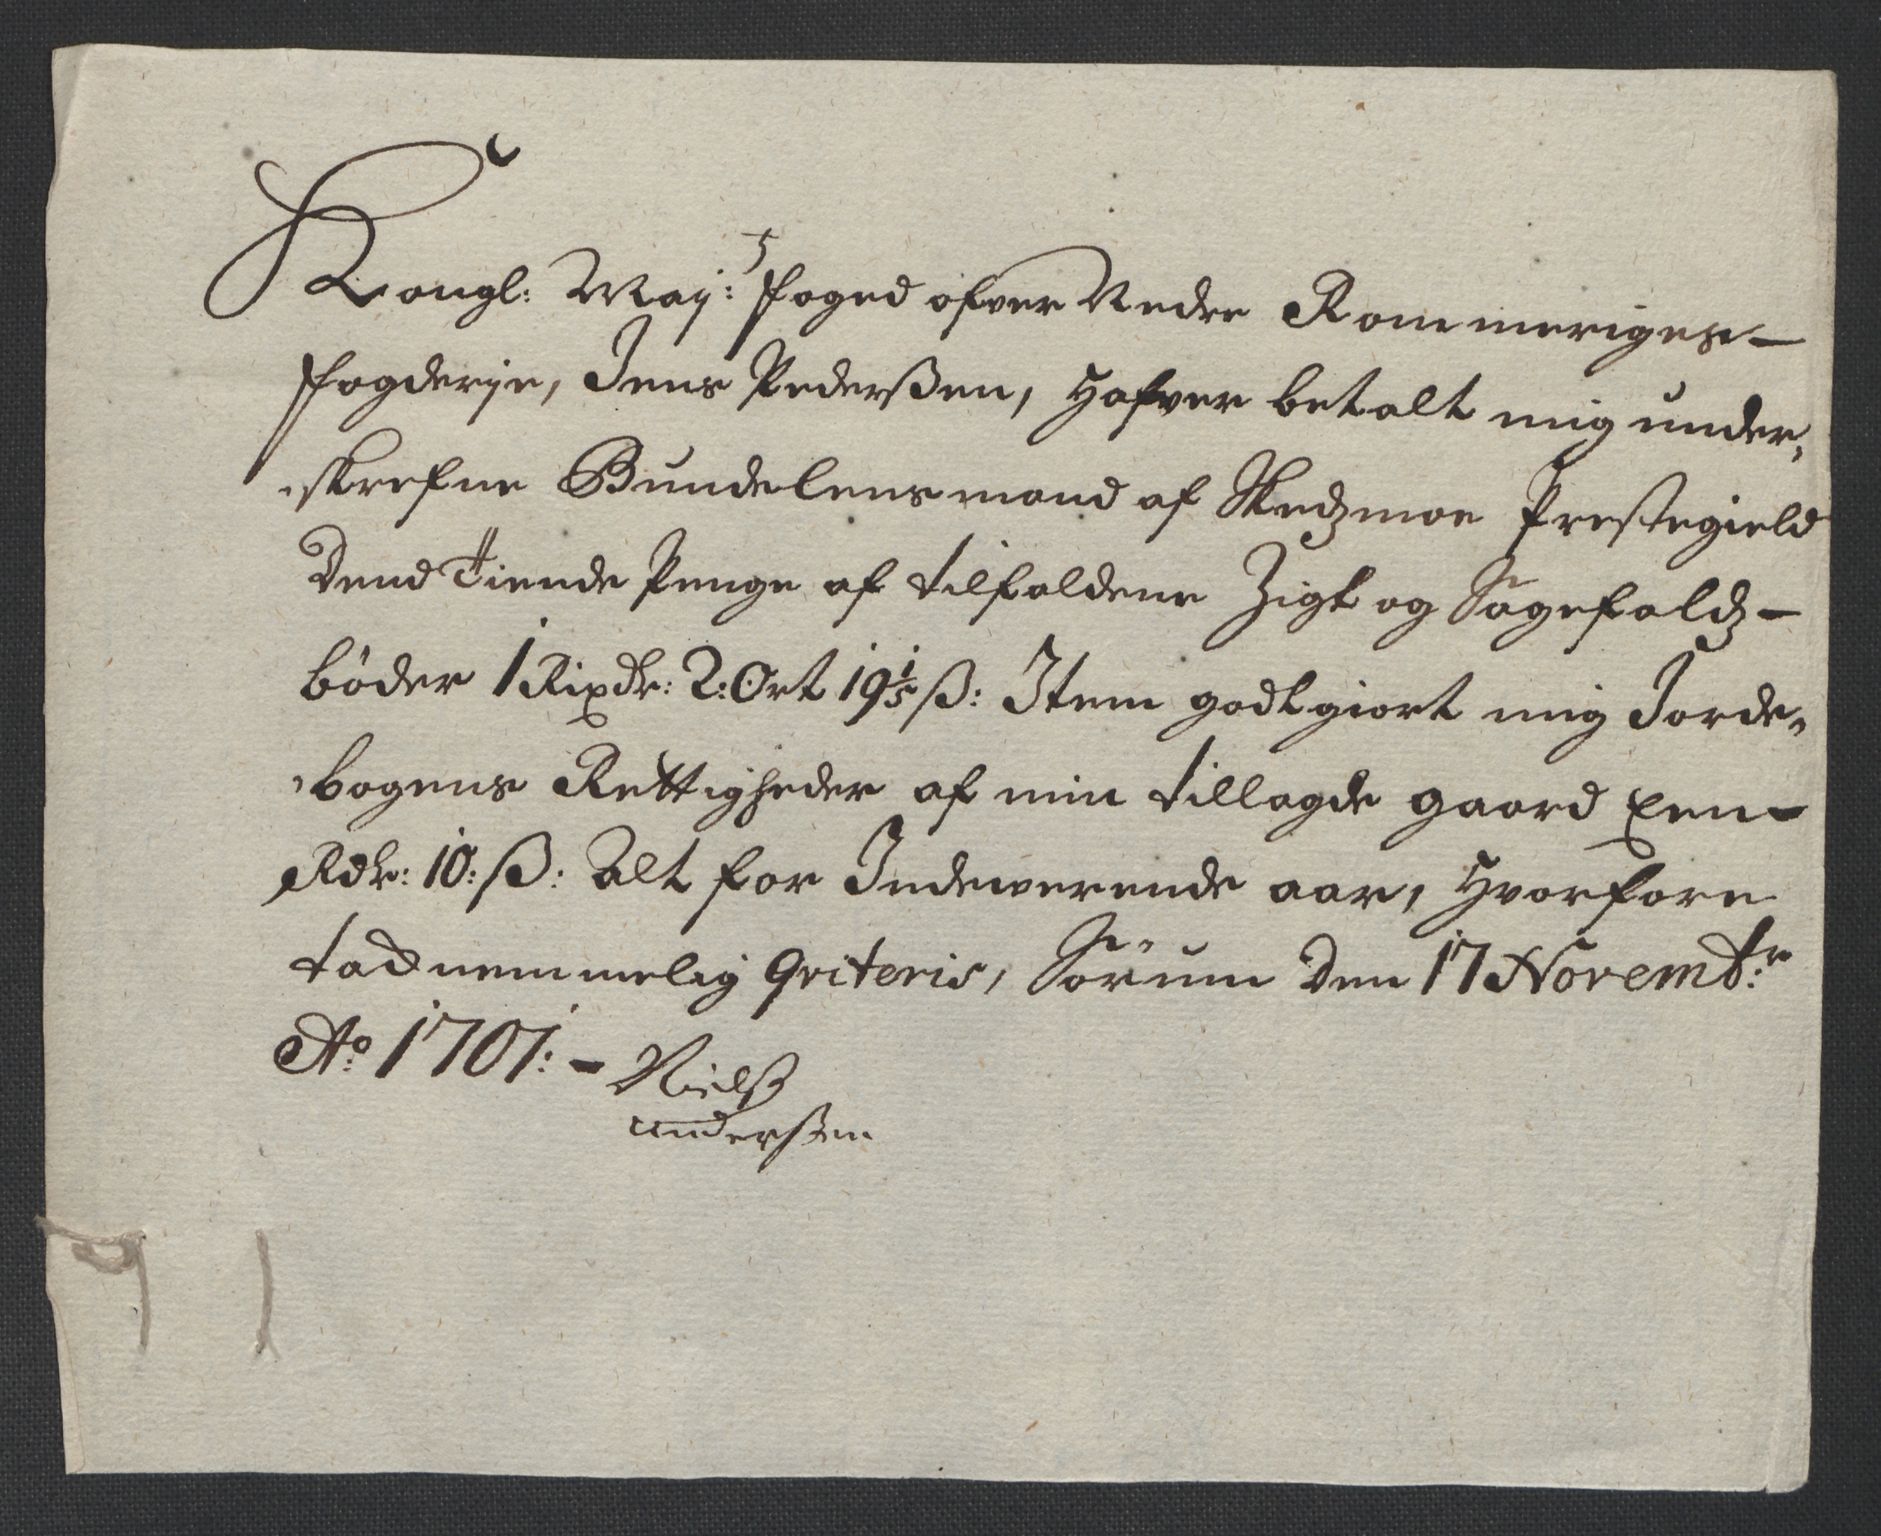 Kongl: Maij:s foged ofver Nedre Rommeriges
fogderje, Jens Pederßen, Hafver betalt mig under,
,skrefne Bundelensmand af Skedzmoe Prestegield
Dend Tiende Penge af tilfaldene Zigt og Sagefaldz-
bøder 1 Rixdr: 2: Ort 19 1/5 ß: Item godtgiort mig Jorde,
,bogens Rettigheder af min tillagde gaard Een
Rdr: 10: ß: Alt for Indeverende aar, Hvorfore
tachnemmelig qviteris, Sørum Den 17 Novembr:
Ao: 1701: - Nielß
anderßen